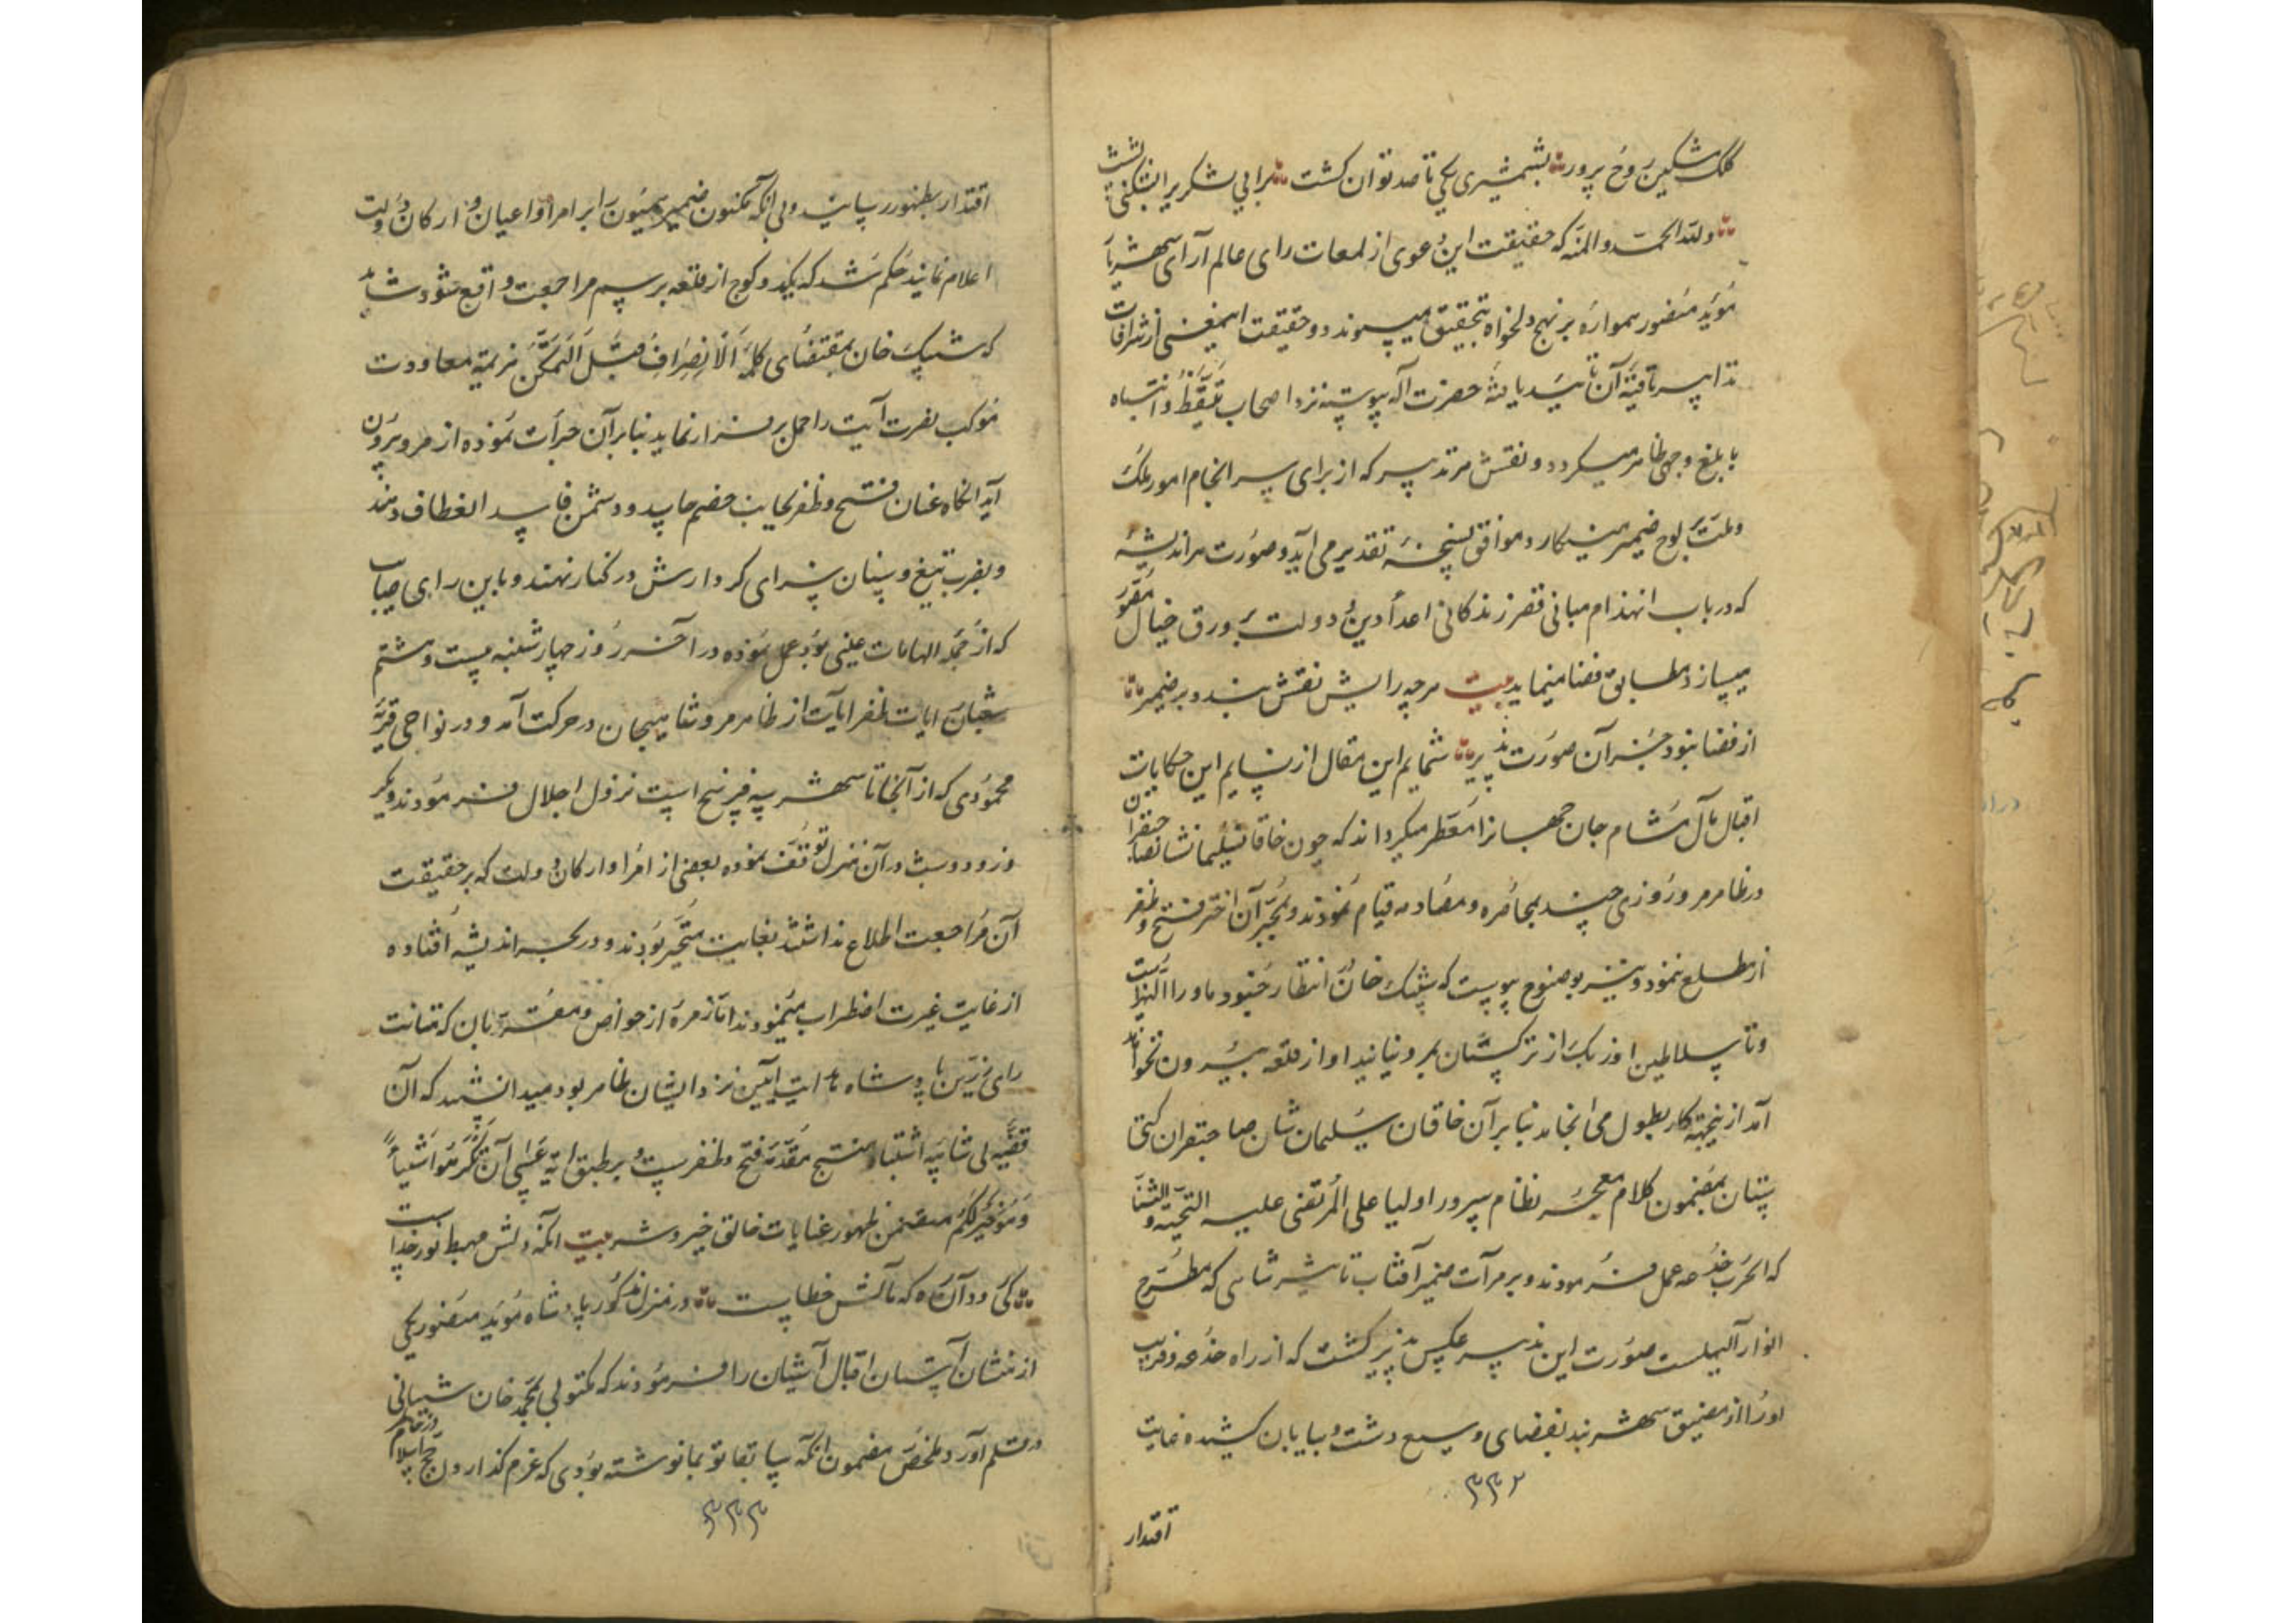 کلک مشکین روح پرور ؞ بشمشیری یکی تا صد توان کشت ؞ برایی لشکریرا بشکنی پشت
؞ و لله الحمد و المنه که حقیقت این دعوی از لمعات رای عالم آرای شهریار
مؤید منصور همواره بر نهج دلخواه بتحقیق میپیوندد و حقیقت اینمعنی از اشراقات
تدابیر ثاقبه آن تأیید یافته حضرت آله پیوسته نزد اصحاب تیقظ و انتباه
بابلغ وجهی ظاهر میگردد و نقش هر تدبیر که از برای سرانجام امور ملک
و ملت بر لوح ضمیر مینگارد موافق نسخه تقدیر می آید و صورت هر اندیشه
که در باب انهدام مبانی قصر زندکانی اعداء دین و دولت بر ورق خیال مقرر
میسازد مطابق قضا مینماید بیت هر چه رایش نقش بندد بر ضمیر ؞
از قضا نبود جز آن صورت پذیر ؞ شمایم این مقال از نسایم این حکایات
اقبال مآل مشام جان جهانیانرا معطر میکرداند که چون خاقان سلیمانشان صاحبقران
در ظاهر مرو روزی چند بمحاصره و مصادمه قیام نمودند و بمجرد آن اختر فتح و ظفر
از مطلع ننمود و نیز بوضوح پیوست که شیبک خان انتظار جنود ماوراءالنهر است
و تا سلاطین اوزبک از ترکستان بمرو نیایند او از قلعه بیرون نخواهد
آمد از ینجهة کار بطول می انجامد بنابر آن خاقان سلیمان شان صاحبقران کیتی
ستان بمضمون کلام معجز نظام سرور اولیا علی المرتضی علیه التحیة و الثنا
که الحرب خدعه عمل فرمودند و بر مرآت ضمیر آفتاب تاثیر شاهی که مطرح
انوار آلهیست صورت این تدبیر عکس پذیر کشت که از راه خدعه و فریب
او را از مضیق شهر بند بفضای وسیع دشت و بیابان کشیده غایت
۳۳۲
اقتدار
اقتدار بظهور رسانید و بی آنکه مکنون ضمیر همیون را بر امرا و اعیان و ارکان دولت
اعلام نمایند حکم شد که یکدو کوچ از قلعه بر سم مراجعت واقع شود شاید
که شیبک خان بمقتضای کلمه الانصراف قبل التمکن هزیمة معاودت
موکب نصرت آیت را حمل بر فرار نماید بنابر آن جرأت نموده از مرو بیرون
آید انکاه عنان فتح و ظفر بجانب خصم جاید و دشمن فاسد انعطاف دهند
و بضرب تیغ و سنان سزای کردارش در کنار نهند و باین رای صایب
که از جمله الهامات غیبی بود عمل نموده در آخر روز چهارشنبه بیست و هشتم
شعبان رایات ظفر آیات از ظاهر مرو شاهیجان در حرکت آمد و در نواحی قریه
محمودی که از آنجا تا شهر سه فرسخ است نزول اجلال فرمودند و یک
روز و دو شب در آن منزل توقف نموده بعضی از امرا و ارکان دولت که بر حقیقت
آن مراجعت اطلاع نداشتند بغایت متحیر بودند و در بحر اندیشه افتاده
از غایت غیرت اضطراب مینمودند اما زمره از خواص و مقربان که متانت
رای رزین پادشاه هدایت آیین نزد ایشان ظاهر بود میدانستند که آن
قضیه بی شائبه اشتباه منتج مقدمه فتح و ظفر است و بر طبق آیه عسی آن تکرهوا شیئاً
و هو خیر لکم متضمن ظهور عنایات خالق خیر و شر بیت آنکه دلش مهبط نور خداست
؞ کی رود آن ره که مآلش خطاست ؞ در منزل مذکور پادشاه مؤید منصور یکی
از منشیان آستان اقبال آشیان را فرمودند که مکتوبی بمحمد خان شیبانی
در قلم آورد ملخص مضمون آنکه سابقا تو بما نوشته بودی که عزم کذاردن حج اسلام
در خاطر
۳۳۳